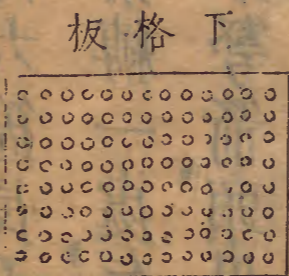 下格板